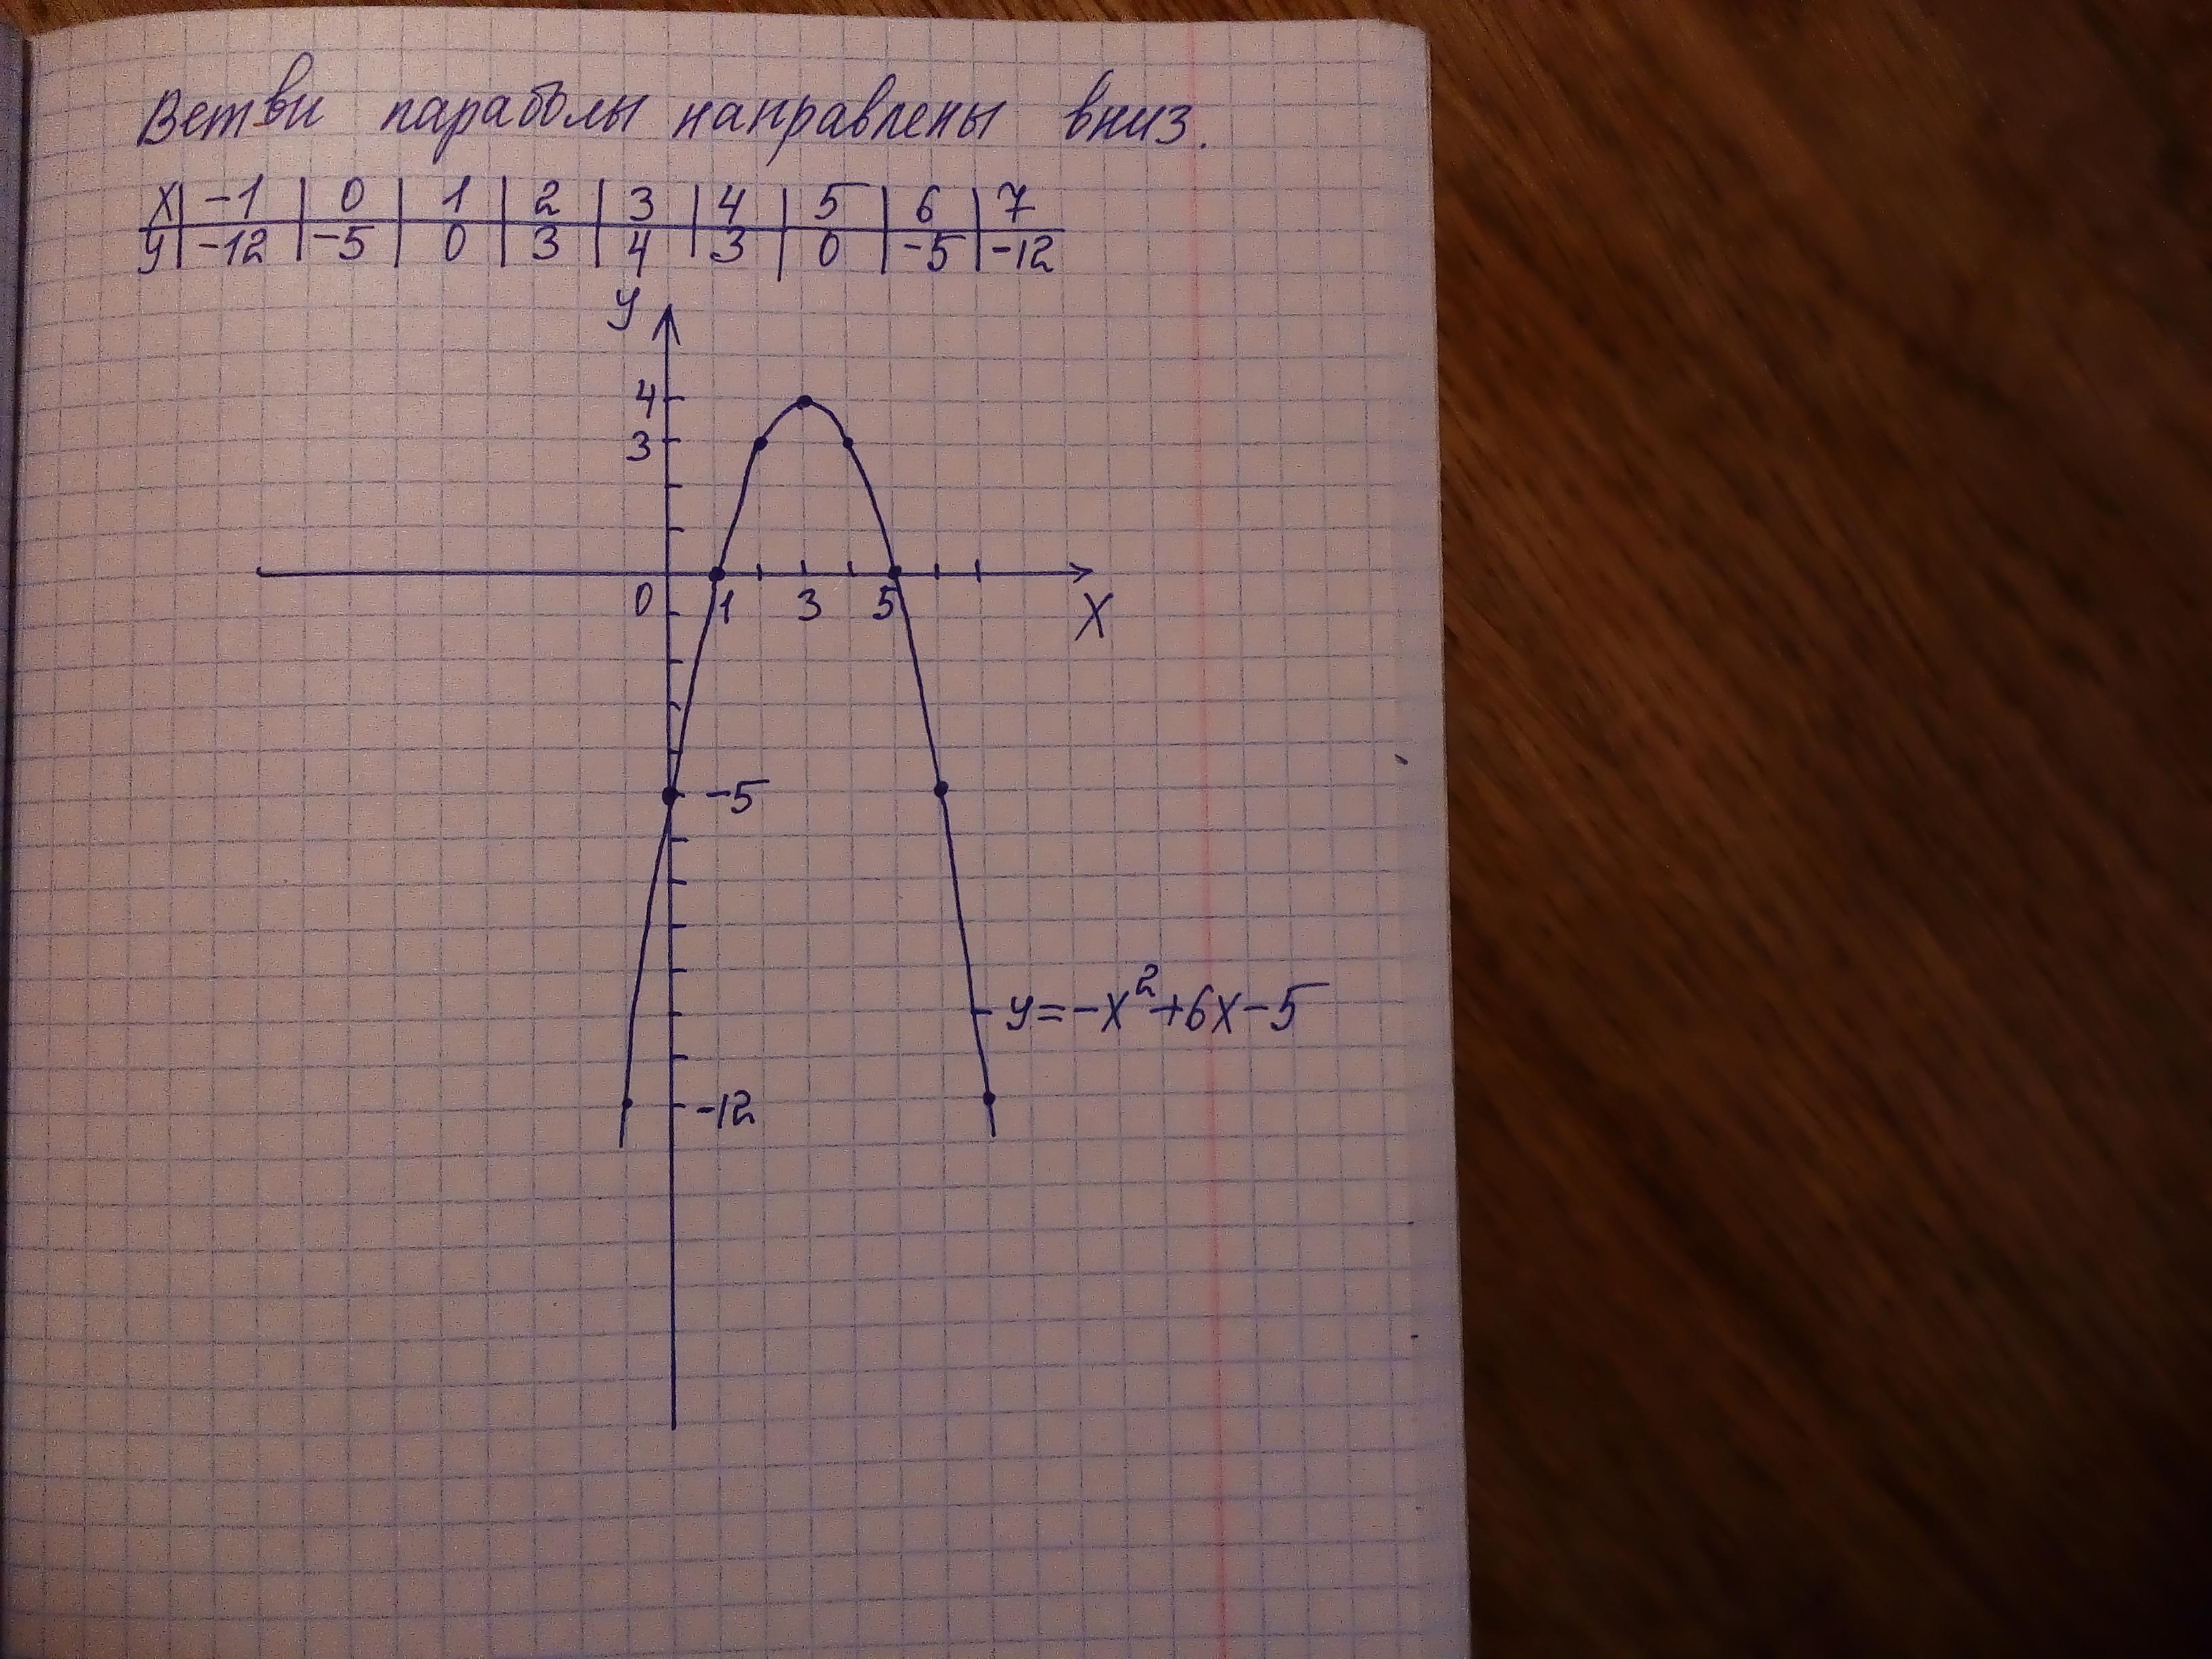 Ветви параболы направлены вниз.
x | -1 | 0 | 1 | 2 | 3 | 4 | 5 | 6 | 7
y | -12 | -5 | 0 | 3 | 4 | 3 | 0 | -5 | -12
y
4
3
0 1 3 5 x
-5
y=-x²+6x-5
-12